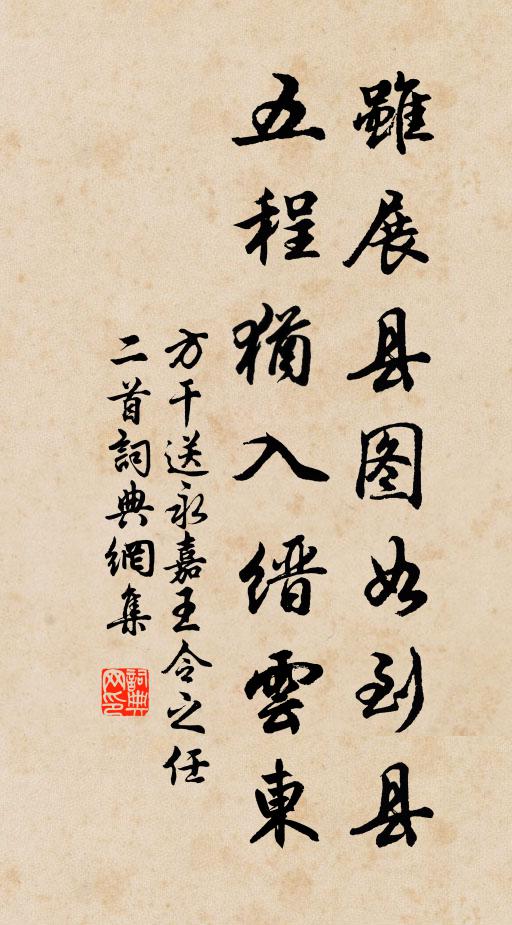 雖展县图如到县
五程猶入缙雲東
方干送永嘉王令之任
二首詞典網集
詞典
网印